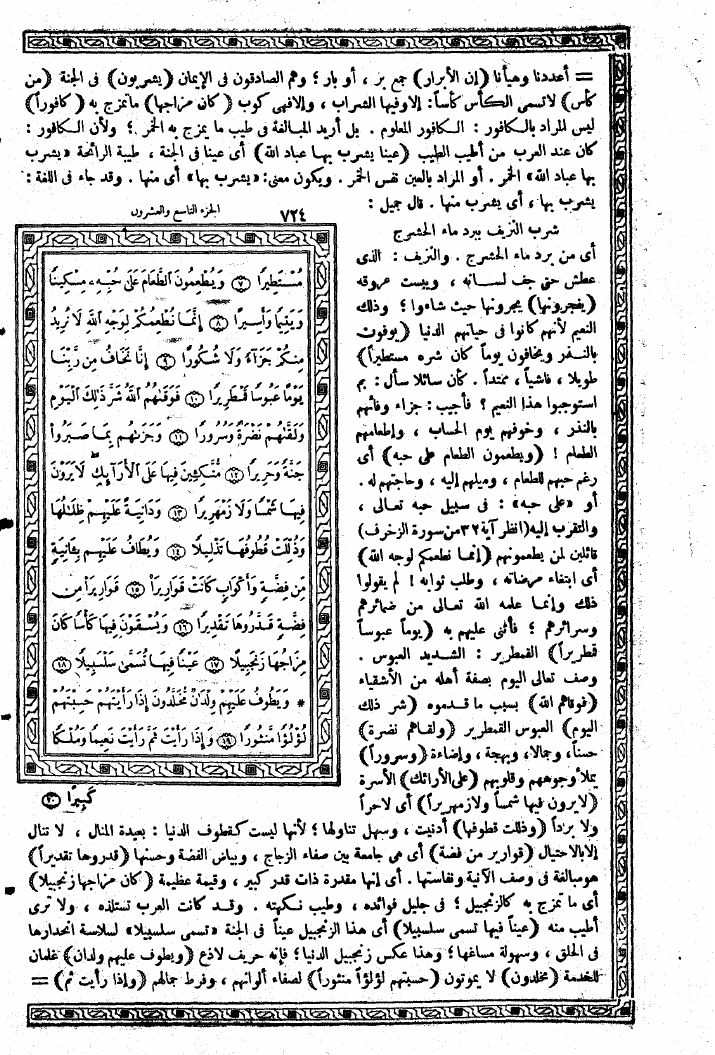 = أعددنا وهيأنا (إن الأبرار) جمع بر ، أو بار ؛ وهم الصادقون فى الإيمان (يشربون) فى الجنة (من
كأس) لا تسمى الكأس كأساً: إلا وفيها الشراب ، وإلا فهى كوب (كان مزاجها) ما تمزج به (كافوراً)
ليس المراد بالكافور : الكافور المعلوم . بل أريد المبالغة فى طيب ما يمزج به الخمر ؛ ولأن الكافور :
كان عند العرب من أطيب الطيب (عينا يشرب بها عباد الله) أى عينا فى الجنة ، طيبة الرائحة «يشرب
بها عباد الله» الخمر . أو المراد بالعين نفس الخمر . ويكون معنى: «يشرب بها» أى منها . وقد جاء فى اللغة :
يشرب بها ، أى يشرب منها . قال جميل :
شرب النزيف ببرد ماء الحشرج
أى من برد ماء الحشرج . والنزيف : الذى
عطش حتى جف لسانه ، ويبست عروقه
(يفجرونها) يجرونها حيث شاءوا ؛ وذلك
النعيم لأنهم كانوا فى حياتهم الدنيا (يوفون
بالنذر ويخافون يوماً كان شره مستطيراً)
طويلا ، فاشياً ، ممتداً . كأن سائلا سأل : بم
استوجبوا هذا النعيم ؟ فأجيب : جزاء وفائهم
بالنذر ، وخوفهم يوم الحساب ، وإطعامهم
الطعام ! (ويطعمون الطعام على حبه) أى
رغم حبهم للطعام ، وميلهم إليه ، وحاجتهم له .
أو «على حبه» : فى سبيل حبه تعالى ،
والتقرب إليه (انظر آية ٣٢ من سورة الزخرف)
قائلين لمن يطعمونهم (إنما نطعمكم لوجه الله)
أى ابتغاء مرضاته ، وطلب ثوابه ! لم يقولوا
ذلك وإنما علمه الله تعالى من ضمائرهم
وسرائرهم ؛ فأثنى عليهم به (يوماً عبوساً
قمطريراً) القمطرير : الشديد العبوس .
وصف تعالى اليوم بصفة أهله من الأشقياء
(فوقاهم الله) بسبب ما قدموه (شر ذلك
اليوم) العبوس القمطرير (ولقاهم نضرة)
حسناً ، وجمالا ، وبهجة ، وإضاءة (وسروراً)
يملأ وجوههم وقلوبهم (على الأرائك) الأسرة
(لا يرون فيها شمساً ولا زمهريراً) أى لا حراً
ولا برداً (وذللت قطوفها) أدنيت ، وسهل تناولها ؛ لأنها ليست كقطوف الدنيا : بعيدة المنال ، لا تنال
إلا بالاحتيال (قوارير من فضة) أى هى جامعة بين صفاء الزجاج ، وبياض الفضة وحسنها (قدروها تقديراً)
هو مبالغة فى وصف الآنية ونفاستها . أى إنها مقدرة ذات قدر كبير ، وقيمة عظيمة (كان مزاجها زنجبيلا)
أى ما تمزج به كالزنجبيل ؛ فى جليل فوائده ، وطيب نكهته . وقد كانت العرب تستلذه ، ولا ترى
أطيب منه (عيناً فيها تسمى سلسبيلا) أى هذا الزنجبيل عيناً فى الجنة «تسمى سلسبيلا» لسلاسة انحدارها
فى الحلق ، وسهولة مساغها ؛ وهذا عكس زنجبيل الدنيا ؛ فإنه حريف لاذع (ويطوف عليهم ولدان) غلمان
للخدمة (مخلدون) لا يموتون (حسبتهم لؤلؤاً منثوراً) لصفاء ألوانهم ، وفرط جمالهم (وإذا رأيت ثم) =
٧٢٤ الجزء التاسع والعشرون
مُسْتَطِيرًا ٧ وَيُطْعِمُونَ ٱلطَّعَامَ عَلَىٰ حُبِّهِۦ مِسْكِينًا
وَيَتِيمًا وَأَسِيرًا ٨ إِنَّمَا نُطْعِمُكُمْ لِوَجْهِ ٱللَّهِ لَا نُرِيدُ
مِنكُمْ جَزَآءً وَلَا شُكُورًا ٩ إِنَّا نَخَافُ مِن رَّبِّنَا
يَوْمًا عَبُوسًا قَمْطَرِيرًا ١٠ فَوَقَىٰهُمُ ٱللَّهُ شَرَّ ذَٰلِكَ ٱلْيَوْمِ
وَلَقَّىٰهُمْ نَضْرَةً وَسُرُورًا ١١ وَجَزَىٰهُم بِمَا صَبَرُوا۟
جَنَّةً وَحَرِيرًا ١٢ مُّتَّكِـِٔينَ فِيهَا عَلَى ٱلْأَرَآئِكِ لَا يَرَوْنَ
فِيهَا شَمْسًا وَلَا زَمْهَرِيرًا ١٣ وَدَانِيَةً عَلَيْهِمْ ظِلَٰلُهَا
وَذُلِّلَتْ قُطُوفُهَا تَذْلِيلًا ١٤ وَيُطَافُ عَلَيْهِم بِـَٔانِيَةٍ
مِّن فِضَّةٍ وَأَكْوَابٍ كَانَتْ قَوَارِيرَا۠ ١٥ قَوَارِيرَا۟ مِن
فِضَّةٍ قَدَّرُوهَا تَقْدِيرًا ١٦ وَيُسْقَوْنَ فِيهَا كَأْسًا كَانَ
مِزَاجُهَا زَنجَبِيلًا ١٧ عَيْنًا فِيهَا تُسَمَّىٰ سَلْسَبِيلًا ١٨
* وَيَطُوفُ عَلَيْهِمْ وِلْدَٰنٌ مُّخَلَّدُونَ إِذَا رَأَيْتَهُمْ حَسِبْتَهُمْ
لُؤْلُؤًا مَّنثُورًا ١٩ وَإِذَا رَأَيْتَ ثَمَّ رَأَيْتَ نَعِيمًا وَمُلْكًا
كَبِيرًا ٢٠